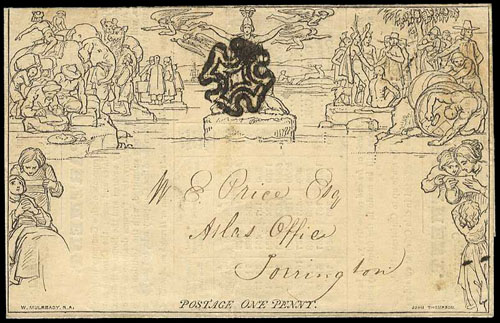 W E Price Esq
Atlas Office
Torrington
POSTAGE ONE PENNY.
W. MULREADY. R.A.
JOHN THOMPSON